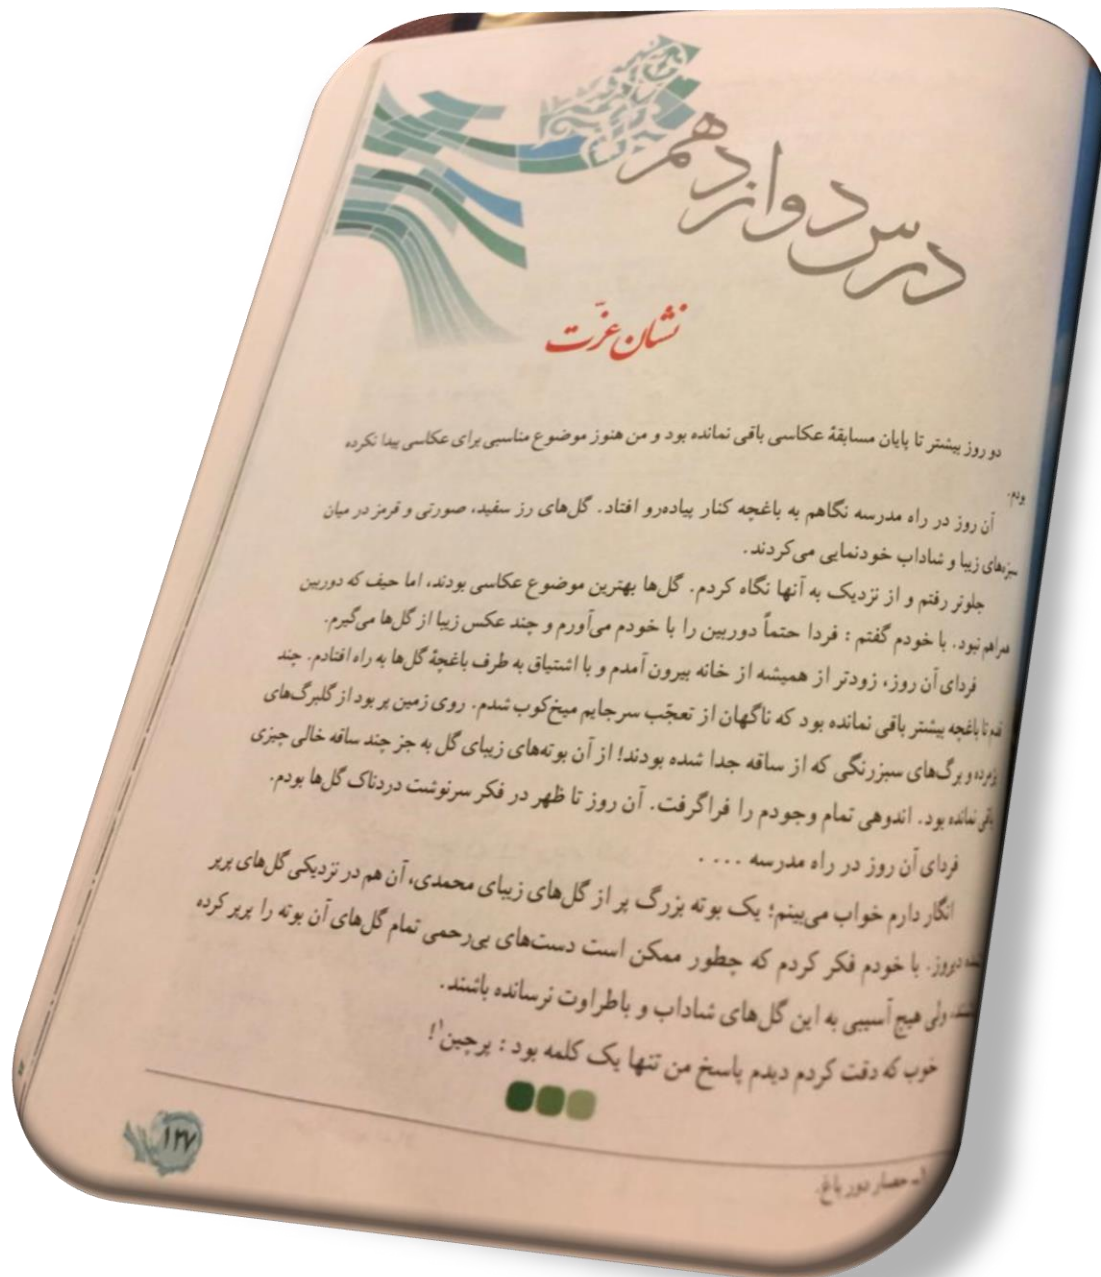 درس دوازدهم
نشان عزّت
دو روز بیشتر تا پایان مسابقهٔ عکاسی باقی نمانده بود و من هنوز موضوع مناسبی برای عکاسی پیدا نکرده
بودم.
آن روز در راه مدرسه نگاهم به باغچه کنار پیاده‌رو افتاد. گل‌های رز سفید، صورتی و قرمز در میان
سبزه‌های زیبا و شاداب خودنمایی می‌کردند.
جلوتر رفتم و از نزدیک به آنها نگاه کردم. گل‌ها بهترین موضوع عکاسی بودند، اما حیف که دوربین
همراهم نبود. با خودم گفتم : فردا حتماً دوربین را با خودم می‌آورم و چند عکس زیبا از گل‌ها می‌گیرم.
فردای آن روز، زودتر از همیشه از خانه بیرون آمدم و با اشتیاق به طرف باغچهٔ گل‌ها به راه افتادم. چند
قدم تا باغچه بیشتر باقی نمانده بود که ناگهان از تعجّب سرجایم میخ‌کوب شدم. روی زمین پر بود از گلبرگ‌های
پژمرده و برگ‌های سبزرنگی که از ساقه جدا شده بودند! از آن بوته‌های زیبای گل به جز چند ساقه خالی چیزی
باقی نمانده بود. اندوهی تمام وجودم را فراگرفت. آن روز تا ظهر در فکر سرنوشت دردناک گل‌ها بودم.
فردای آن روز در راه مدرسه ....
انگار دارم خواب می‌بینم؛ یک بوته بزرگ پر از گل‌های زیبای محمدی، آن هم در نزدیکی گل‌های پرپر
شده دیروز. با خودم فکر کردم که چطور ممکن است دست‌های بی‌رحمی تمام گل‌های آن بوته را پرپر کرده
باشند، ولی هیچ آسیبی به این گل‌های شاداب و باطراوت نرسانده باشند.
خوب که دقت کردم دیدم پاسخ من تنها یک کلمه بود : پرچین۱!
۱ـ حصار دور باغ.
۱۲۷